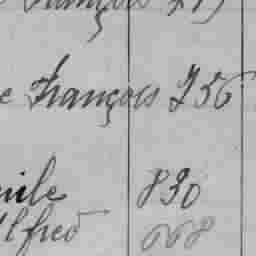 François
e François 756
mile 830
Alfred 668